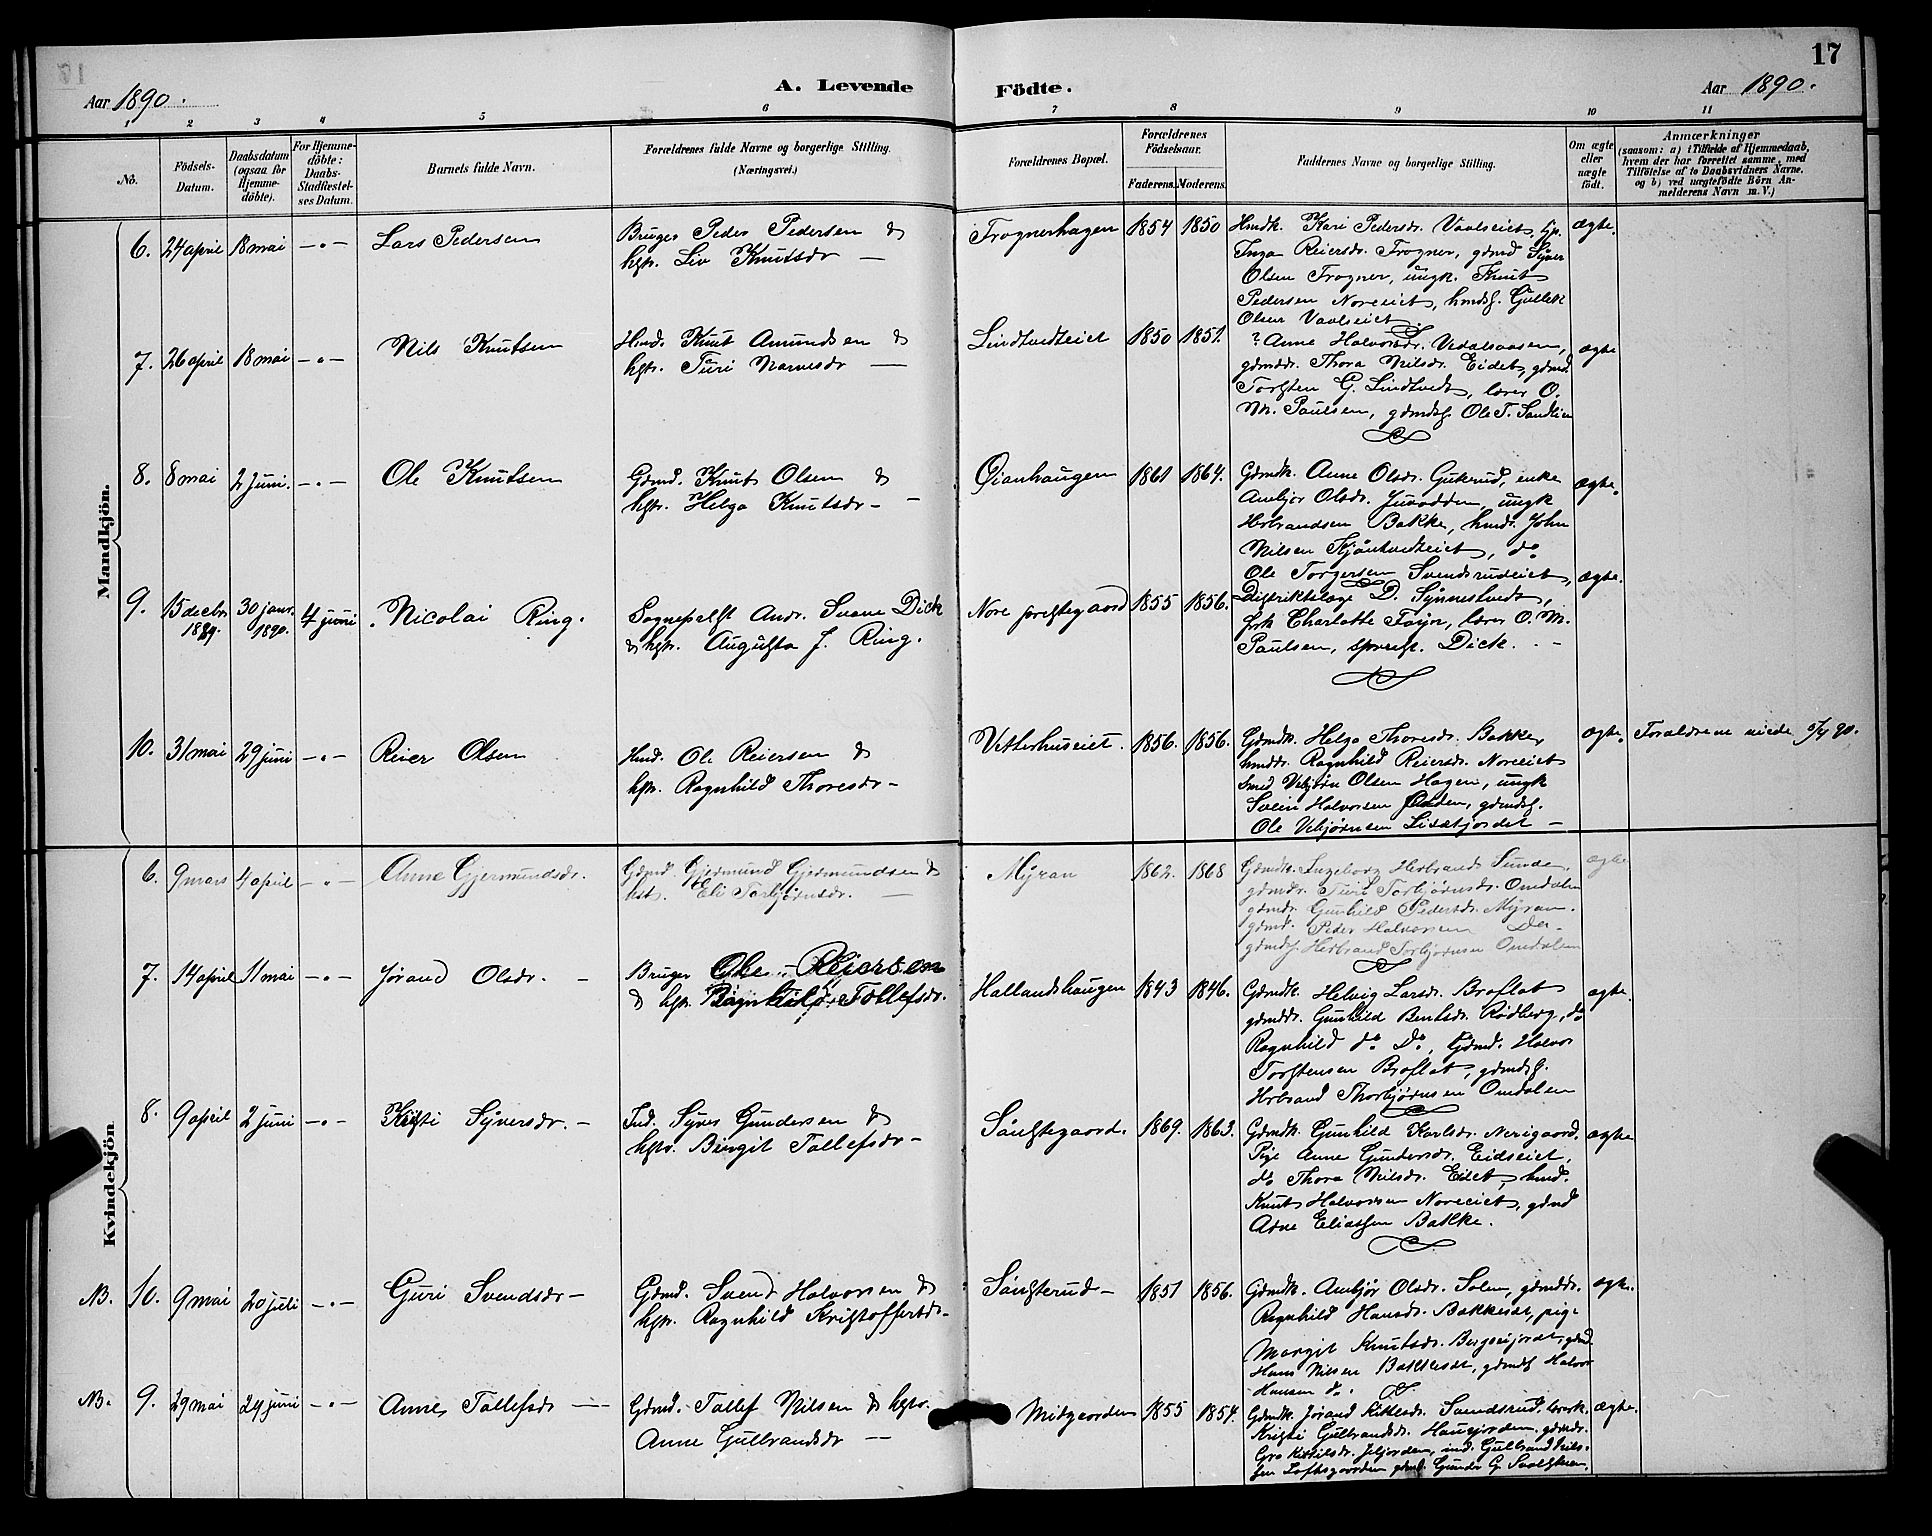 17
Aar 1890.
A. Levende Födte.
Aar 1890.
1 2 3 4 5 6 7 8 9 10 11
No.
Födsels-Datum.
Daabsdatum (ogsaa for Hjemmedöbte).
For Hjemmedöbte: Daabs-Stadfæstelses Datum.
Barnets fulde Navn.
Forældrenes fulde Navne og borgerlige Stilling. (Næringsvei.)
Forældrenes Bopæl.
Forældrenes Födselsaar.
Faderens. Moderens.
Faddernes Navne og borgerlige Stilling.
Om ægte eller uægte födt.
Anmærkninger
(saasom: a) i Tilfælde af Hjemmedaab, hvem der har forrettet samme, med Tilföielse af to Daabsvidners Navne, og b) ved uægtefödte Börn Anmelderens Navn m. V.)
Mandkjön.
6. 24 april 18 mai -„- Lars Pedersen
Bruger Peder Pedersen &
hstr. Liv Knutsdr —
Frognerhagen 1854 1850
Hmdk. Kari Pedersdr. Vaalseiet, Gp.
Inga Reiersdr. Frogner, gdmd Syver
Olsen Frogner, ungk. Knut
Pedersen Noreeiet, hmdsf. Gullek
Olsen Vaalseiet
ægte.
7. 26 april 18 mai -„- Nils Knutsen
Hmd. Knut Amundsen &
hstr. Turi Narvesdr —
Lindtvedteiet 1850 1851.
? Anne Halvorsdr. Vedalsaasen,
gdmddr. Thora Nilsdr. Eidet, gdmd.
Torsten G. Lindtvedt, lærer O.
M. Paulsen, gdmdsf. Ole T. Sandlien
ægte
8. 8 mai 2 juni. -„- Ole Knutsen
Gdmd. Knut Olsen &
hstr. Helga Knutsdr —
Øianhaugen 1861 1864.
Gdmdk. Anne Olsdr. Gukerud, enke
Ambjør Olsdr. Juvodden, ungk
Herbrandsen Bakke, hmds. John
Nilsen Kjøntvedteiet, do
Ole Torgersen Svendsrudeiet,
ægte.
9. 15 decbr 1889. 30 janr. 1890. 4 juni. Nicolai Ring.
Sogneprest Andr. Svane Dick
& hstr. Augusta J. Ring.
Nore prestegaard 1855 1856.
Distriktslæge D. Synnestvedt,
frk Charlotte Faye, lærer O. M.
Paulsen, sprestf. Dick. -
ægte.
10. 31 mai 29 juni -„- Reier Olsen
Hmd. Ole Reiersen &
hstr. Ragnhild Thoresdr —
Vetterhuseiet. 1856. 1856.
Gdmdk. Helga Thoresdr. Bakke,
hmddr. Ragnhild Reiersdr. Noreeiet
Smed Vebjørn Olsen Hagen, ungk
Svein Halvorsen, gdmdsf.
Ole Vebjørnsen Lisætjordet —
ægte. Forældrene viede 5/4 90.
Kvindekjön.
6. 9 mars 4 april -„- Anne Gjermundsdr.
Gdmd. Gjermund Gjermundsen &
hstr. Eli Torbjørnsdr. —
Myran 1862. 1868
Gdmdk. Ingeborg Herbrandsd Sunde,
gdmdr. Turi Torbjørnsdr. Omdalen
gdmdr. Gunhild Pedersdr. Myran.
gdmd. Peder Halvorsen Do.
gdmdsf. Herbrand Torbjørnsen Omdalen
ægte
7. 14 april 11 mai -„- Jørand Olsdr. -
Bruger Ole Reiersen
& hstr. Ragnhild Tollefsdr.
Hallandshaugen 1843 1846.
Gdmdk. Helvig Larsdr. Broflat
gdmddr. Gunhild Bentsdr. Rødberg, do
Ragnhild do Do, Gdmd. Halvor
Torstensen Broflat, gdmdsf.
Herbrand Thorbjørnsen Omdalen
ægte.
8. 9 april 2 juni -„- Kristi Syversdr. -
Ind. Syver Gundersen &
hstr. Birgit Tollefsdr —
Sønstegaard. 1869. 1863.
Gdmdk. Gunhild Karlsdr. Nerigaard.
Pige Anne Gundersdr. Eidseiet,
do Thora Nilsdr. Eidet, hmd.
Knut Halvorsen Noreeiet, gdmd
Arne Eliassen Bakke.
ægte
NB. 10. 9 mai 20 juli -„- Guri Svendsdr —
Gdmd. Svend Halvorsen &
hstr. Ragnhild Kristoffersdr —
Sønsterud — 1851 1856.
Gdmdk. Ambjør Olsdr. Solem, gdmddr.
Ragnhild Hansdr. Bakkeset, pige
Margit Knutsdr. Bergseijordet, gdmd.
Hans Nilsen Bakkeset, gdmdsf Halvor
Hansen do.
ægte.
NB. 9. 29 mai 24 juni -„- Anne Tollefsdr —
Gdmd. Tollef Nilsen & hstr.
Anne Gulbrandsdr —
Midgaarden 1855 1854.
Gdmdk. Jørand Kittilsdr. Svendsrud,
Kristi Gulbrandsdr. Haugjorden, gdmdr.
Gro Kittilsdr., ind. Gulbrand Nilsen
Loftsgaarden gdmdsf. Gunder G.
ægte.